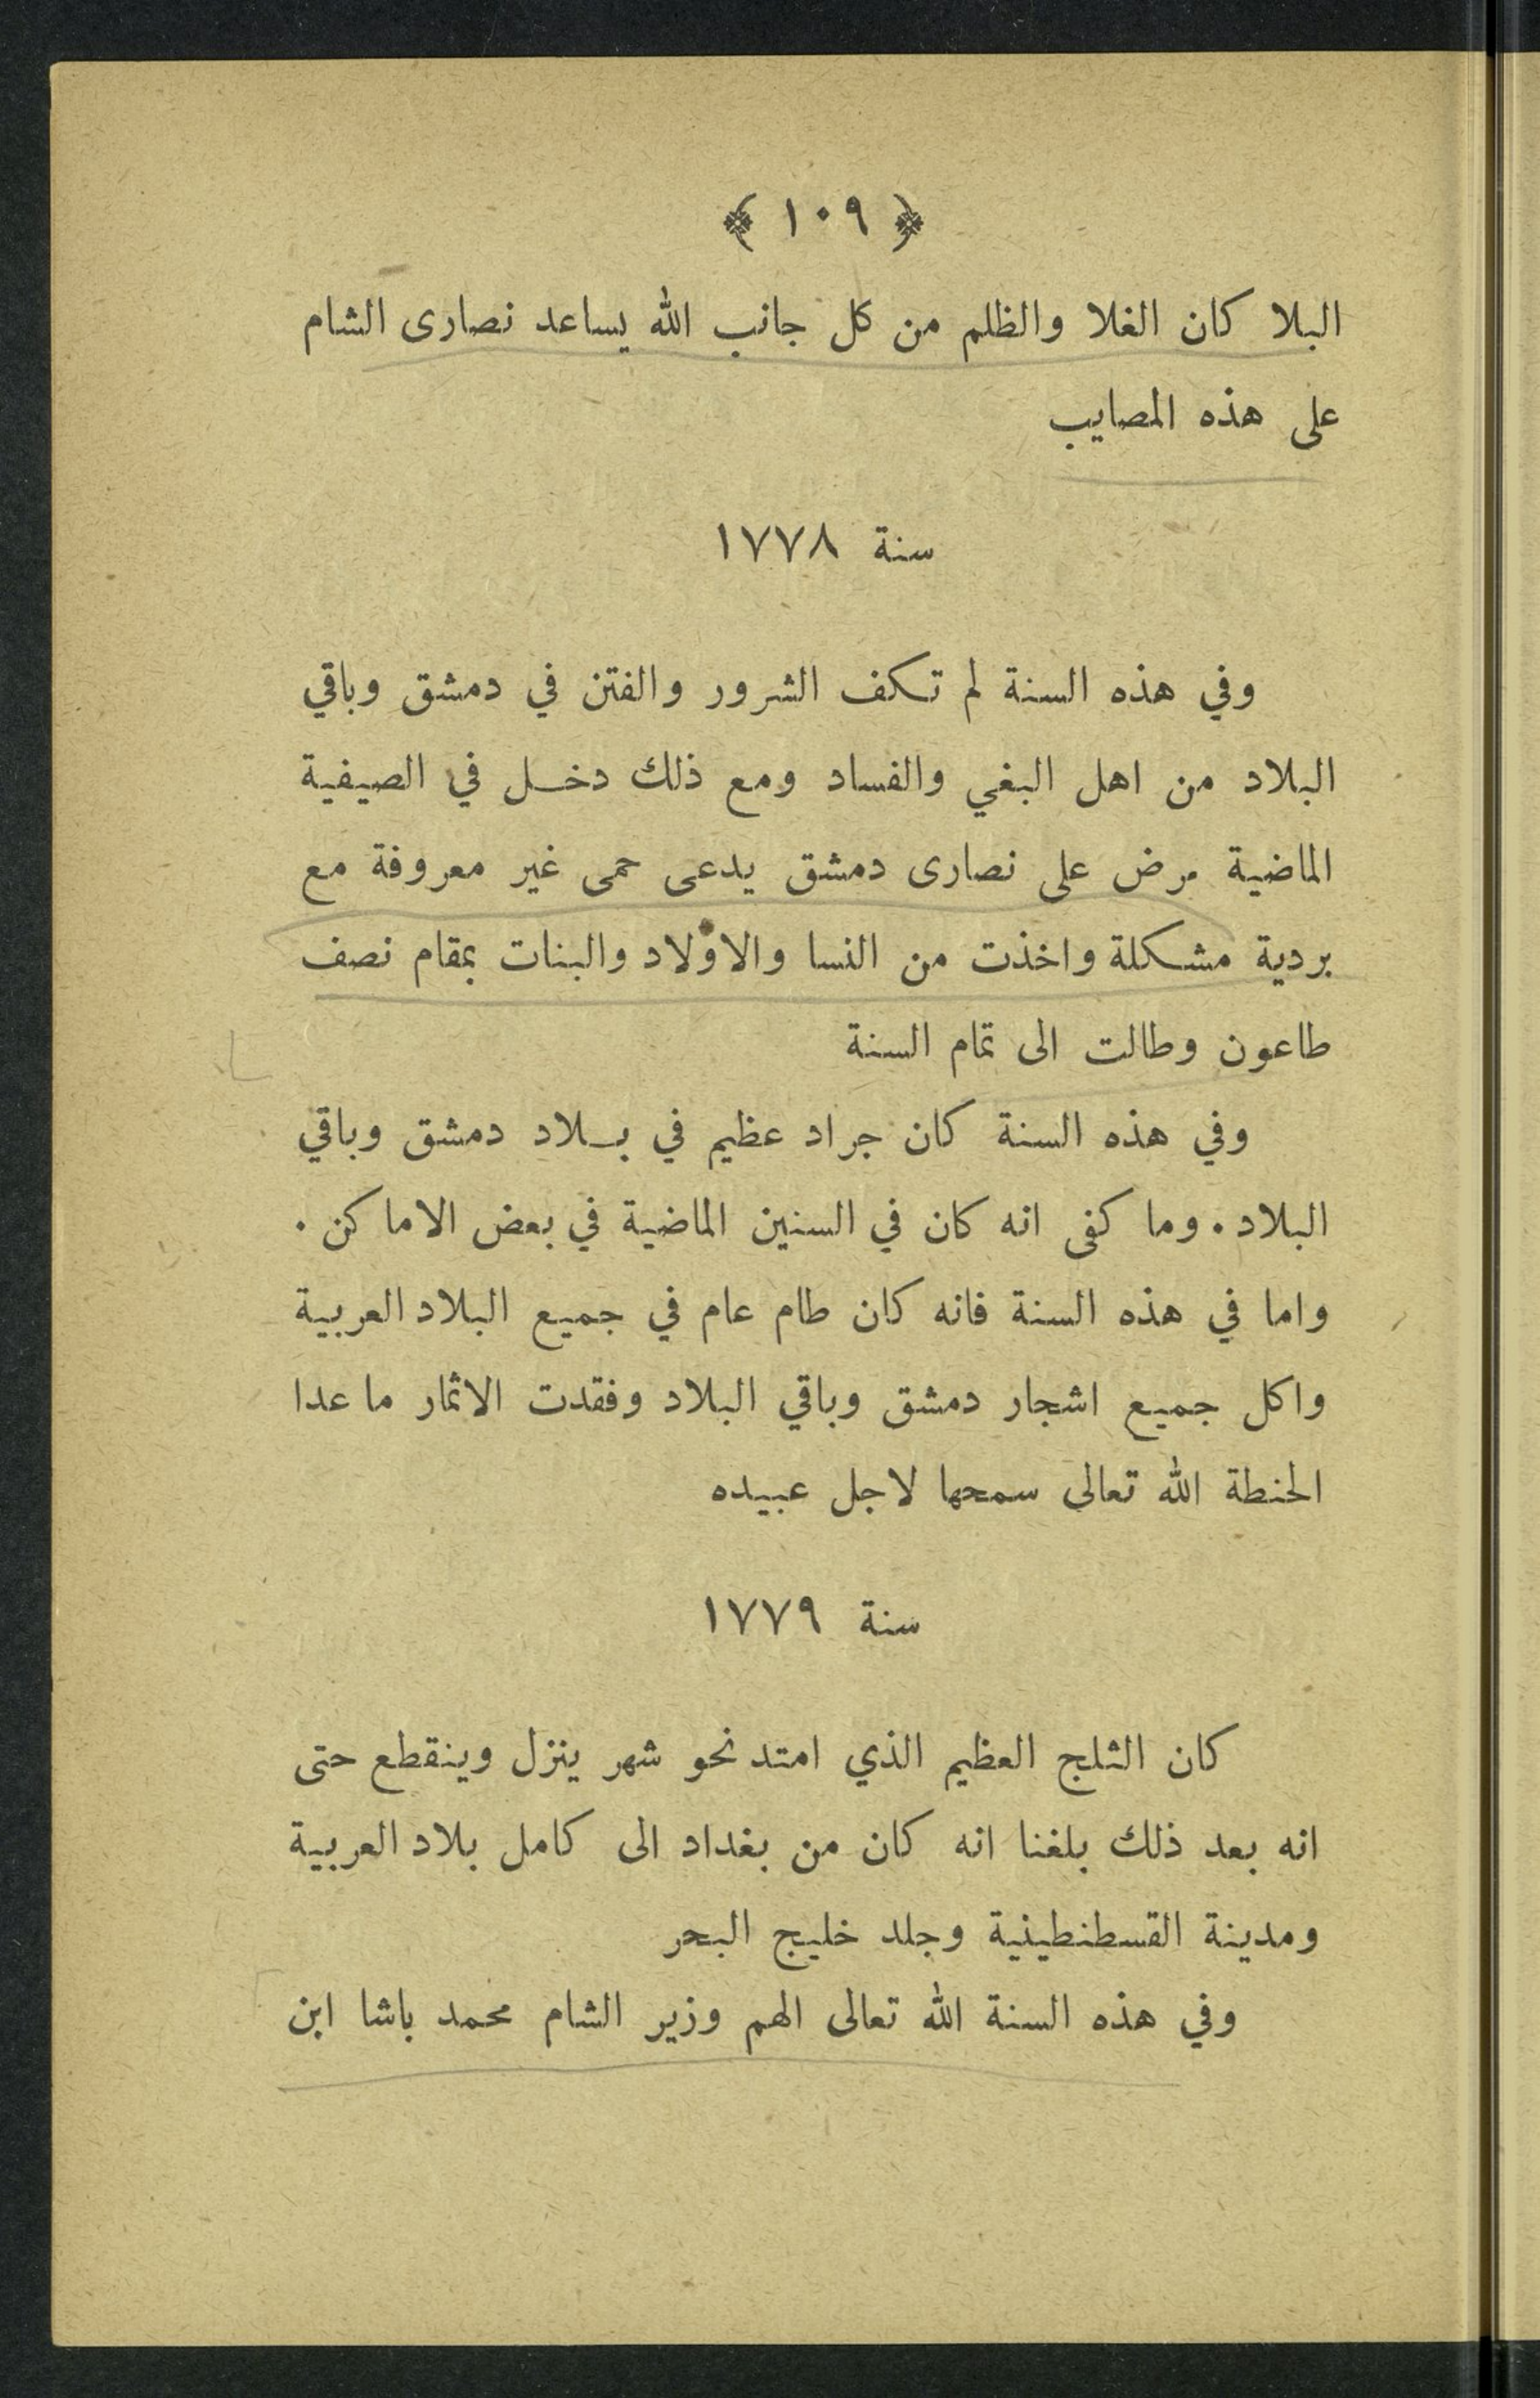 ﴿ ١٠٩ ﴾
البلا كان الغلا والظلم من كل جانب الله يساعد نصارى الشام
على هذه المصايب
سنة ١٧٧٨
وفي هذه السنة لم تكف الشرور والفتن في دمشق وباقي
البلاد من اهل البغي والفساد ومع ذلك دخل في الصيفية
الماضية مرض على نصارى دمشق يدعى حمى غير معروفة مع
بردية مشكلة واخذت من النسا والاولاد والبنات بمقام نصف
طاعون وطالت الى تمام السنة
وفي هذه السنة كان جراد عظيم في بلاد دمشق وباقي
البلاد. وما كفى انه كان في السنين الماضية في بعض الاماكن.
واما في هذه السنة فانه كان طام عام في جميع البلاد العربية
واكل جميع اشجار دمشق وباقي البلاد وفقدت الاثمار ما عدا
الحنطة الله تعالى سمحها لاجل عبيده
سنة ١٧٧٩
كان الثلج العظيم الذي امتد نحو شهر ينزل وينقطع حتى
انه بعد ذلك بلغنا انه كان من بغداد الى كامل بلاد العربية
ومدينة القسطنطينية وجلد خليج البحر
وفي هذه السنة الله تعالى الهم وزير الشام محمد باشا ابن